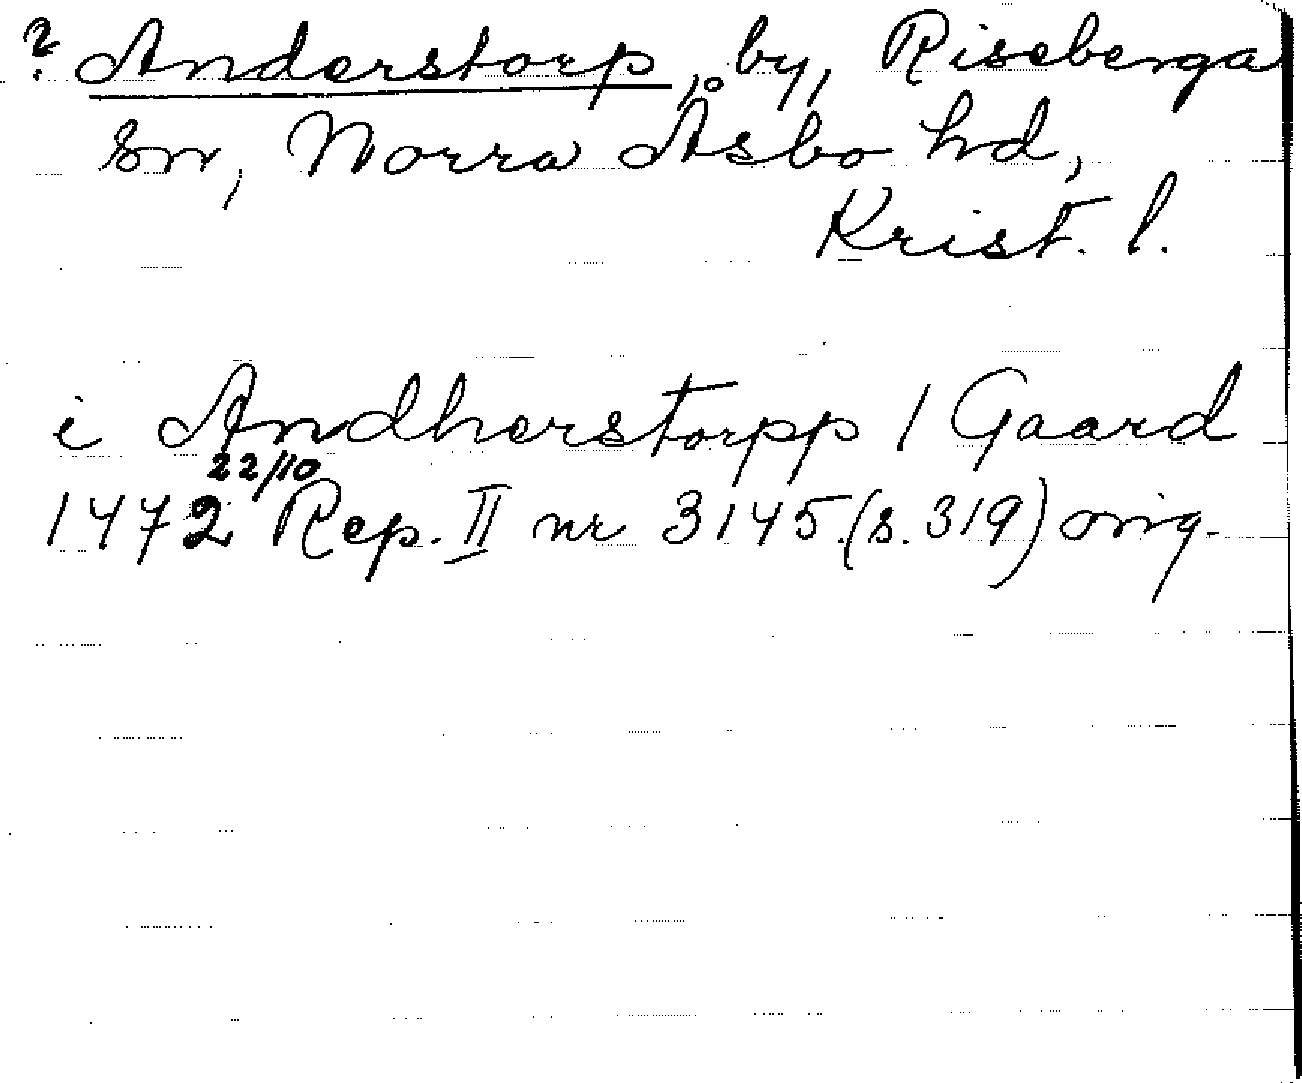 ? Anderstorp, by, Riseberga
sn, Norra Åsbo hd,
Krist. l.
i Andherstorpp 1 Gaard
22/10
1472 Rep. II nr 3145.(s. 319) orig.